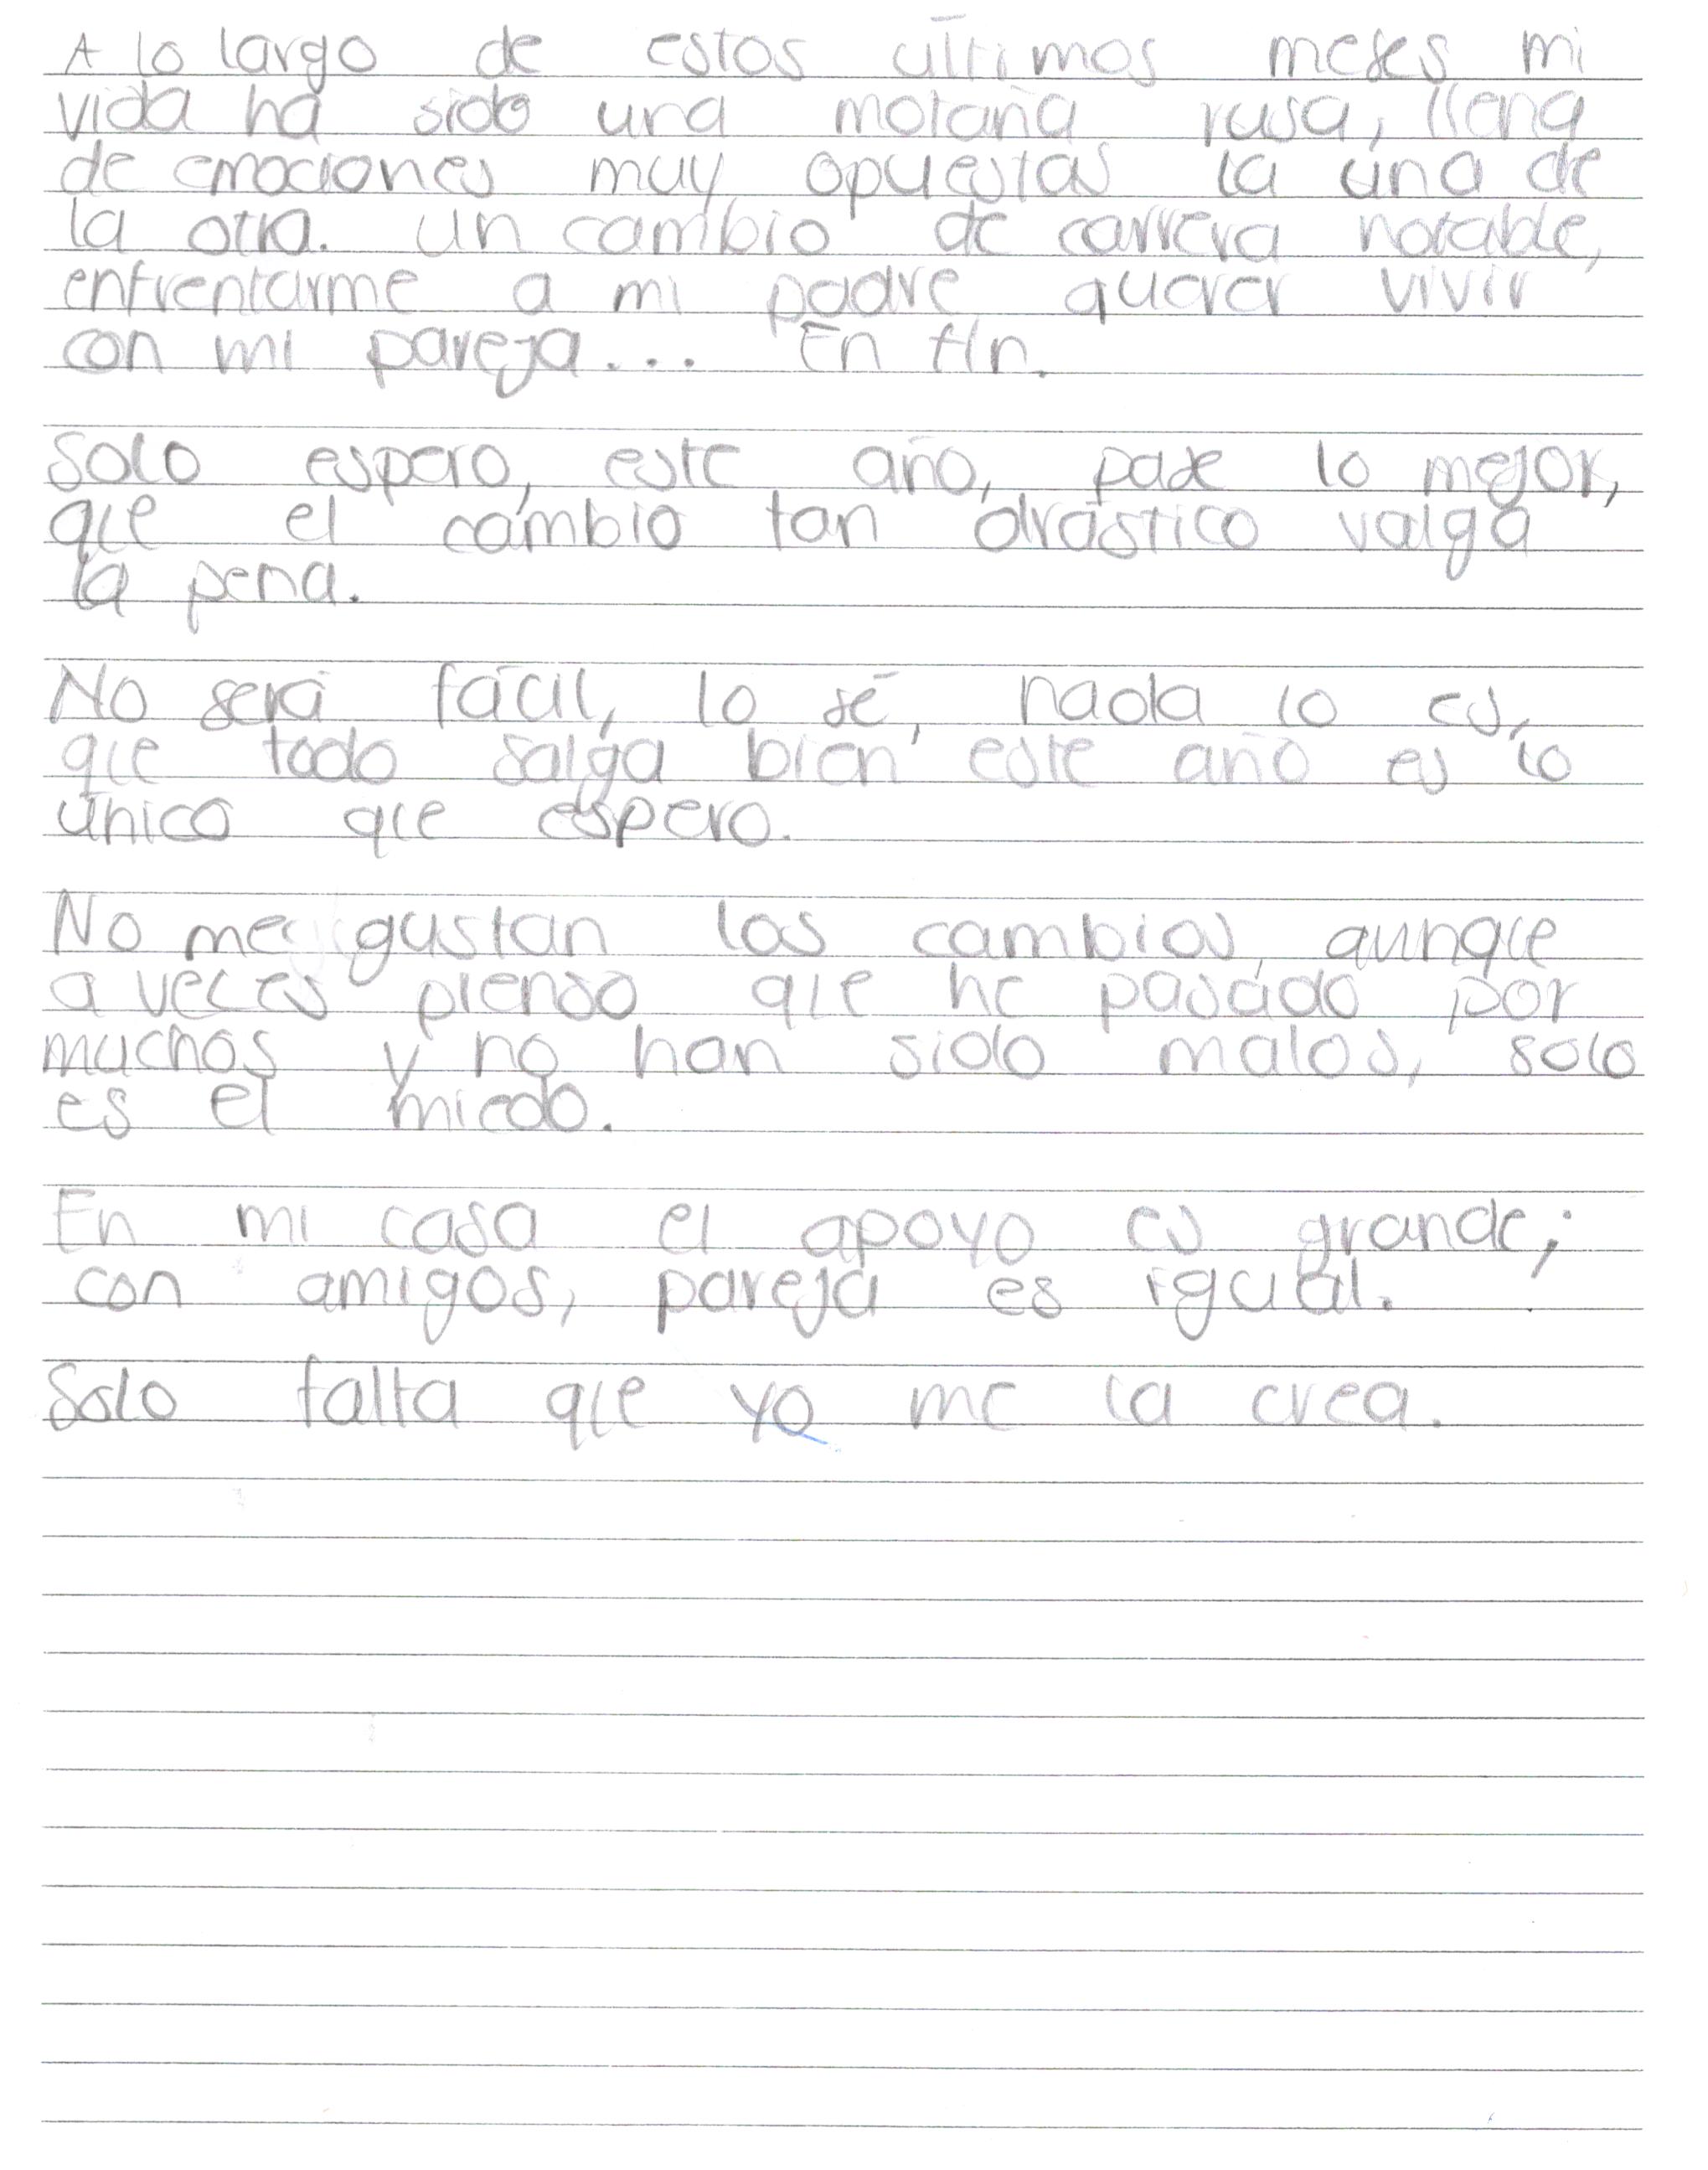 A lo largo de estos últimos meses mi
vida ha sido una motaña rusa, llena
de emociones muy opuestas la una de
la otra. Un cambio de carrera notable,
enfrentarme a mi padre querer vivir
con mi pareja... En fin.
Solo espero, este año, pase lo mejor,
que el cambio tan drástico valga
la pena.
No será fácil, lo sé, nada lo es,
que todo salga bien este año es lo
único que espero.
No me gustan los cambios, aunque
a veces pienso que he pasado por
muchos y no han sido malos, solo
es el miedo.
En mi casa el apoyo es grande;
con amigos, pareja es igual.
Solo falta que yo me la crea.